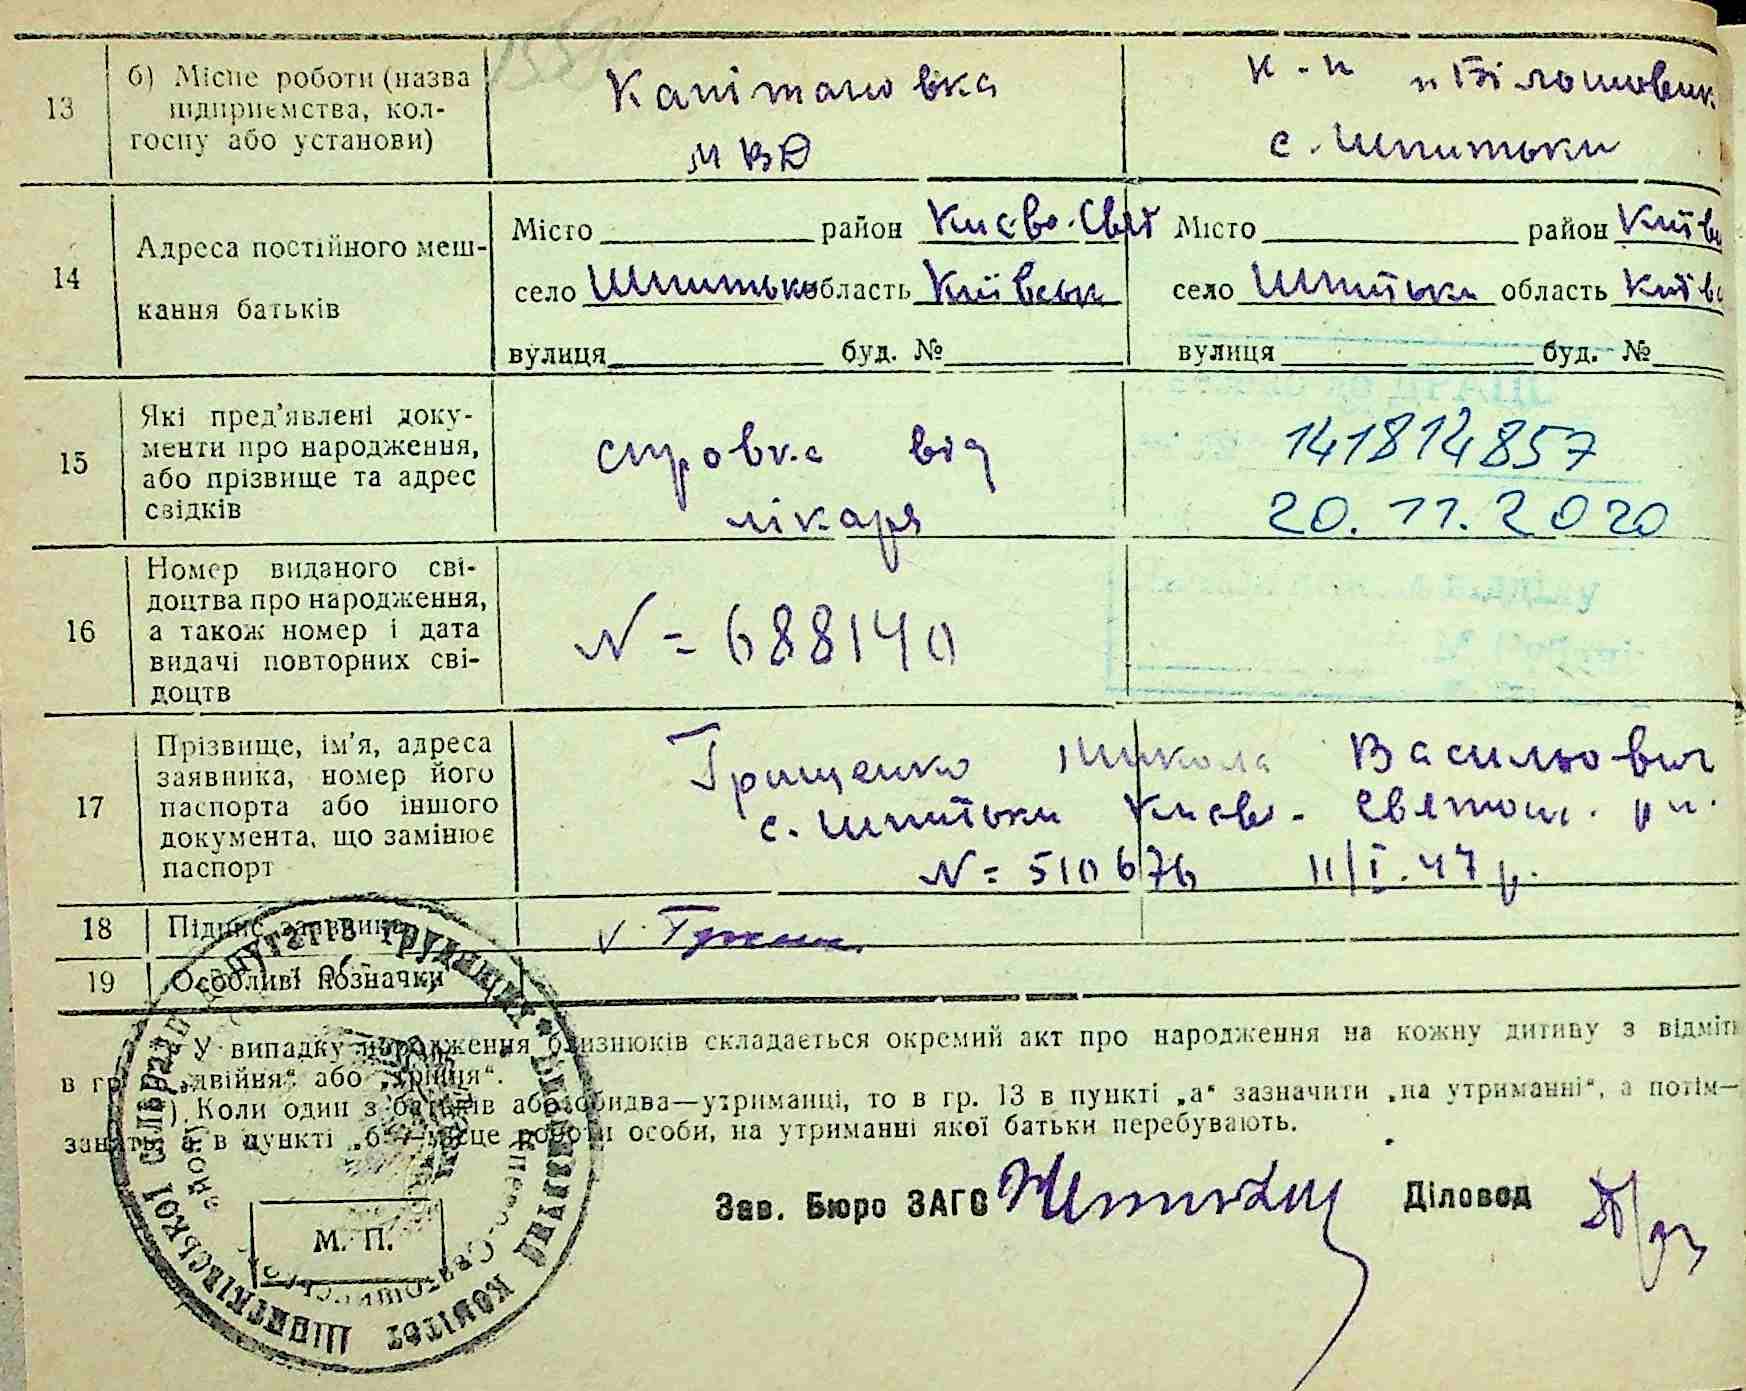 13
б) Місце роботи (назва
підприємства, кол-
госпу або установи)
Капітановка
МВД
к-п "Більшовик
с. Шпитьки
14
Адреса постійного меш-
кання батьків
Місто район Києво-Свят
село Шпитьки область Київськ
вулиця буд. №
Місто район Києв
село Шпитьки область Київс
вулиця буд. №
15
Які пред'явлені доку-
менти про народження,
або прізвище та адрес
свідків
справка від
лікаря
141814857
20.11.2020
16
Номер виданого сві-
доцтва про народження,
а також номер і дата
видачі повторних сві-
доцтв
N = 688140
17
Прізвище, ім'я, адреса
заявника, номер його
паспорта або іншого
документа, що замінює
паспорт
Грищенко Микола Васильович
с. Шпитьки Києво-Святош. р-н.
N = 510676 11/I.47 р.
18
Підпис заявника
19
Особливі позначки
У випадку народження близнюків складається окремий акт про народження на кожну дитину з відмітк
в гр. „двійня“ або „трійця“.
) Коли один з батьків або обидва—утриманці, то в гр. 13 в пункті „а“ зазначити „на утриманні“, а потім—
заняття, а в пункті „б“—місце роботи особи, на утриманні якої батьки перебувають.
Зав. Бюро ЗАГС
Діловод
М. П.